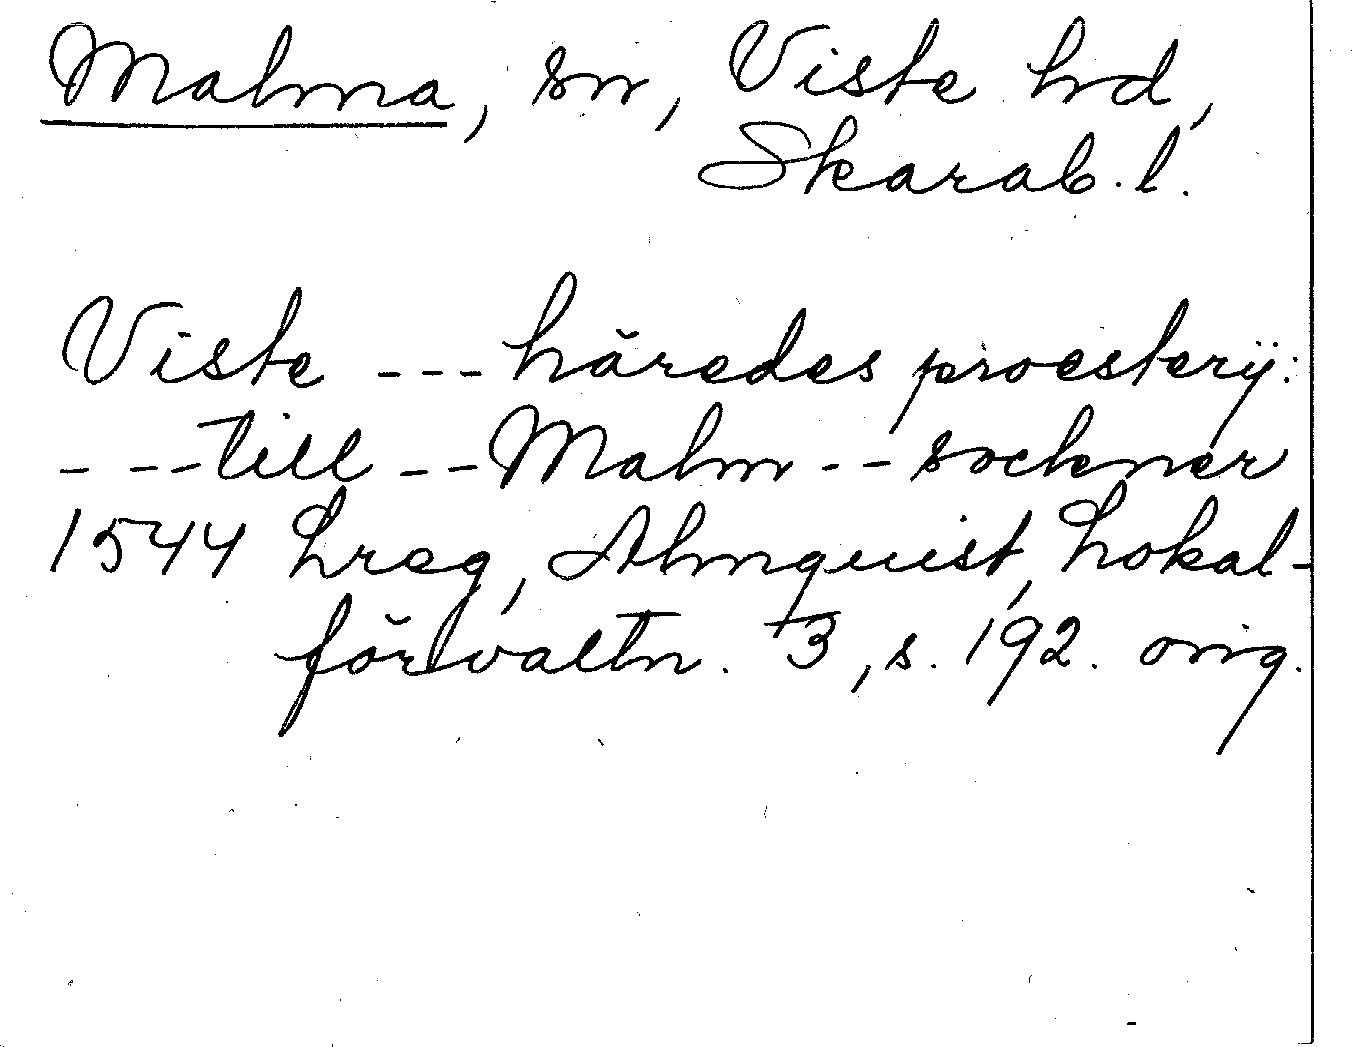 Malma, sn, Viste hd,
Skarab. l.
Viste --- häredes proesterij:
- --- till --- Malm -- sockner
1544 Lreg, Almquist, Lokal-
förvaltn. 3, s. 192. orig.